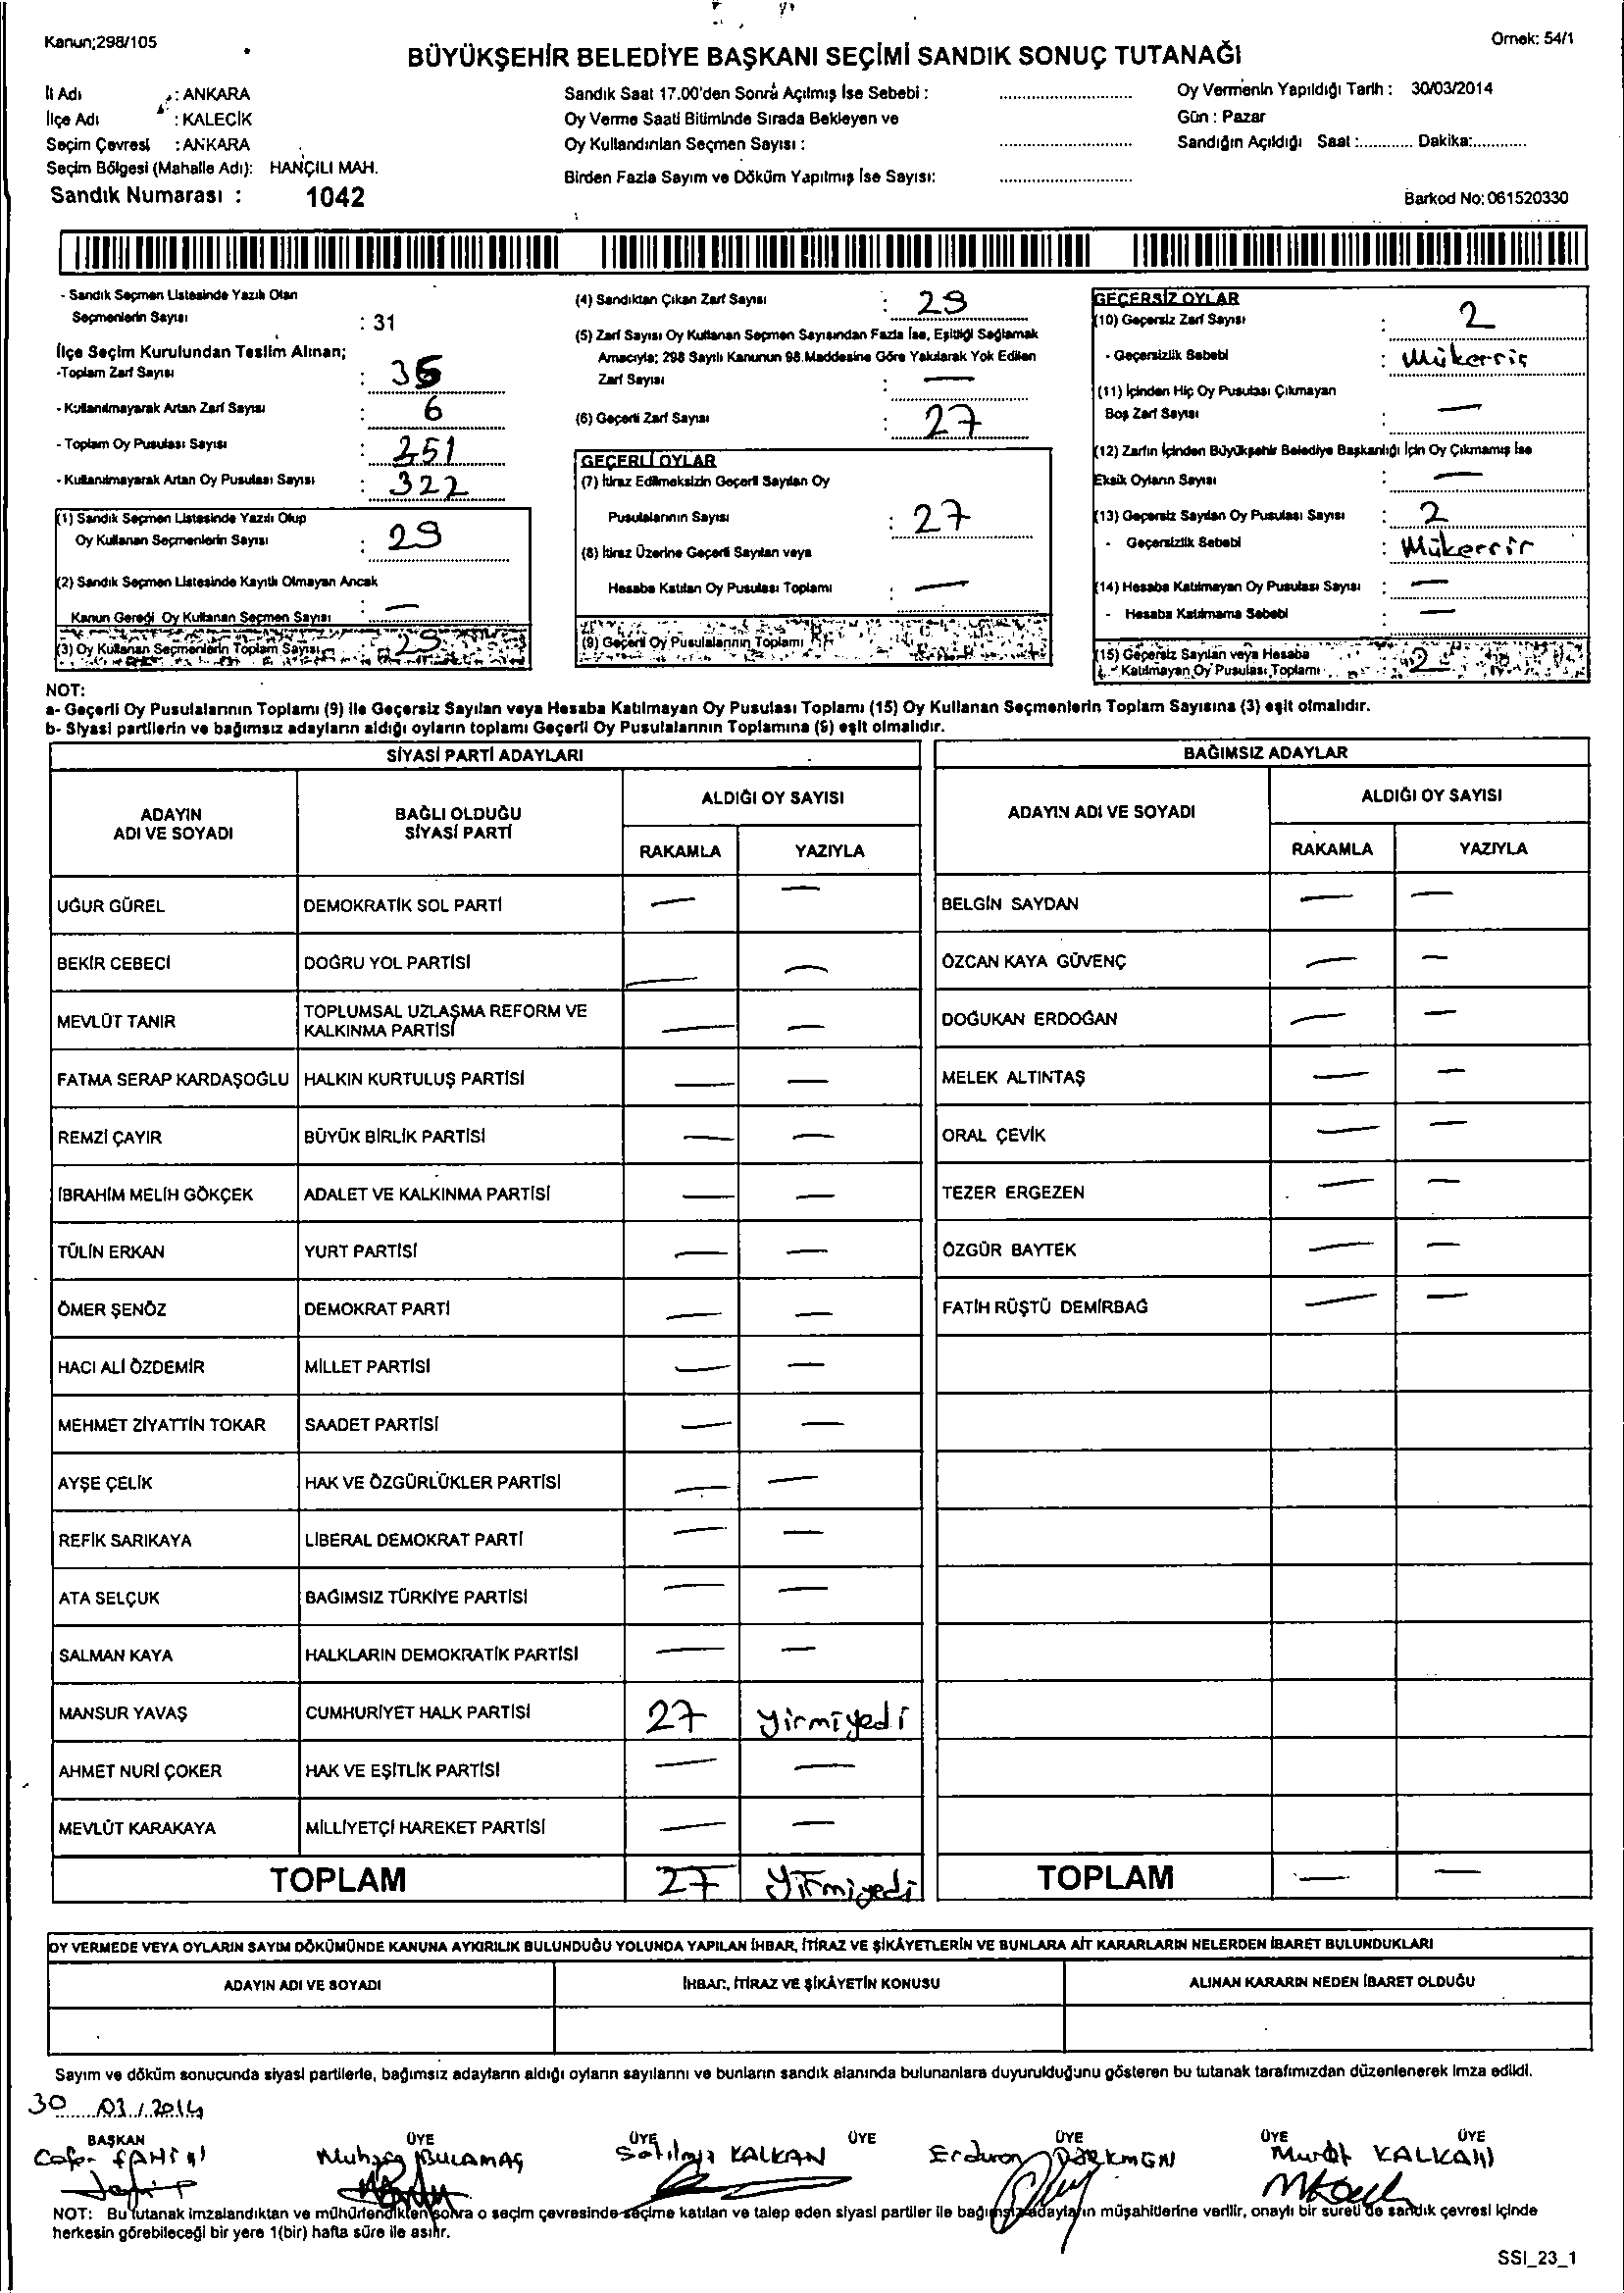 Kanun;298/105
Örnek: 54/1
BÜYÜKŞEHİR BELEDİYE BAŞKANI SEÇİMİ SANDIK SONUÇ TUTANAĞI
İl Adı : ANKARA
İlçe Adı : KALECİK
Seçim Çevresi : ANKARA
Seçim Bölgesi (Mahalle Adı): HANÇILI MAH.
Sandık Numarası : 1042
Sandık Saat 17.00'den Sonra Açılmış İse Sebebi : ..............................
Oy Verme Saati Bitiminde Sırada Bekleyen ve
Oy Kullandırılan Seçmen Sayısı : ..............................
Birden Fazla Sayım ve Döküm Yapılmış İse Sayısı: ..............................
Oy Vermenin Yapıldığı Tarih : 30/03/2014
Gün : Pazar
Sandığın Açıldığı Saat :............ Dakika:............
Barkod No: 061520330
- Sandık Seçmen Listesinde Yazılı Olan
Seçmenlerin Sayısı : 31
İlçe Seçim Kurulundan Teslim Alınan;
-Toplam Zarf Sayısı : 35
- Kullanılmayarak Artan Zarf Sayısı : 6
- Toplam Oy Pusulası Sayısı : 351
- Kullanılmayarak Artan Oy Pusulası Sayısı : 322
(1) Sandık Seçmen Listesinde Yazılı Olup
Oy Kullanan Seçmenlerin Sayısı : 29
(2) Sandık Seçmen Listesinde Kayıtlı Olmayan Ancak
Kanun Gereği Oy Kullanan Seçmen Sayısı : —
(3) Oy Kullanan Seçmenlerin Toplam Sayısı 29
(4) Sandıktan Çıkan Zarf Sayısı : 29
(5) Zarf Sayısı Oy Kullanan Seçmen Sayısından Fazla İse, Eşitliği Sağlamak
Amacıyla; 298 Sayılı Kanunun 98.Maddesine Göre Yakılarak Yok Edilen
Zarf Sayısı : —
(6) Geçerli Zarf Sayısı : 27
GEÇERLİ OYLAR
(7) İtiraz Edilmeksizin Geçerli Sayılan Oy
Pusulalarının Sayısı : 27
(8) İtiraz Üzerine Geçerli Sayılan veya
Hesaba Katılan Oy Pusulası Toplamı : —
(9) Geçerli Oy Pusulalarının Toplamı
GEÇERSİZ OYLAR
(10) Geçersiz Zarf Sayısı : 2
- Geçersizlik Sebebi : Mükerrir
(11) İçinden Hiç Oy Pusulası Çıkmayan
Boş Zarf Sayısı : —
(12) Zarfın İçinden Büyükşehir Belediye Başkanlığı İçin Oy Çıkmamış İse
Eksik Oyların Sayısı : —
(13) Geçersiz Sayılan Oy Pusulası Sayısı : 2
- Geçersizlik Sebebi : Mükerrir
(14) Hesaba Katılmayan Oy Pusulası Sayısı : —
- Hesaba Katılmama Sebebi : —
(15) Geçersiz Sayılan veya Hesaba
Katılmayan Oy Pusulası Toplamı 2
NOT:
a- Geçerli Oy Pusulalarının Toplamı (9) ile Geçersiz Sayılan veya Hesaba Katılmayan Oy Pusulası Toplamı (15) Oy Kullanan Seçmenlerin Toplam Sayısına (3) eşit olmalıdır.
b- Siyasi partilerin ve bağımsız adayların aldığı oyların toplamı Geçerli Oy Pusulalarının Toplamına (9) eşit olmalıdır.
SİYASİ PARTİ ADAYLARI
ADAYIN ADI VE SOYADI
BAĞLI OLDUĞU SİYASİ PARTİ
ALDIĞI OY SAYISI
RAKAMLA YAZIYLA
UĞUR GÜREL DEMOKRATİK SOL PARTİ — —
BEKİR CEBECİ DOĞRU YOL PARTİSİ — —
MEVLÜT TANIR TOPLUMSAL UZLAŞMA REFORM VE KALKINMA PARTİSİ — —
FATMA SERAP KARDAŞOĞLU HALKIN KURTULUŞ PARTİSİ — —
REMZİ ÇAYIR BÜYÜK BİRLİK PARTİSİ — —
İBRAHİM MELİH GÖKÇEK ADALET VE KALKINMA PARTİSİ — —
TÜLİN ERKAN YURT PARTİSİ — —
ÖMER ŞENÖZ DEMOKRAT PARTİ — —
HACI ALİ ÖZDEMİR MİLLET PARTİSİ — —
MEHMET ZİYATTİN TOKAR SAADET PARTİSİ — —
AYŞE ÇELİK HAK VE ÖZGÜRLÜKLER PARTİSİ — —
REFİK SARIKAYA LİBERAL DEMOKRAT PARTİ — —
ATA SELÇUK BAĞIMSIZ TÜRKİYE PARTİSİ — —
SALMAN KAYA HALKLARIN DEMOKRATİK PARTİSİ — —
MANSUR YAVAŞ CUMHURİYET HALK PARTİSİ 27 yirmiyedi
AHMET NURİ ÇOKER HAK VE EŞİTLİK PARTİSİ — —
MEVLÜT KARAKAYA MİLLİYETÇİ HAREKET PARTİSİ — —
TOPLAM 27 yirmiyedi
BAĞIMSIZ ADAYLAR
ADAYIN ADI VE SOYADI
ALDIĞI OY SAYISI
RAKAMLA YAZIYLA
BELGİN SAYDAN — —
ÖZCAN KAYA GÜVENÇ — —
DOĞUKAN ERDOĞAN — —
MELEK ALTINTAŞ — —
ORAL ÇEVİK — —
TEZER ERGEZEN — —
ÖZGÜR BAYTEK — —
FATİH RÜŞTÜ DEMİRBAĞ — —
TOPLAM — —
OY VERMEDE VEYA OYLARIN SAYIM DÖKÜMÜNDE KANUNA AYKIRILIK BULUNDUĞU YOLUNDA YAPILAN İHBAR, İTİRAZ VE ŞİKÂYETLERİN VE BUNLARA AİT KARARLARIN NELERDEN İBARET BULUNDUKLARI
ADAYIN ADI VE SOYADI
İHBAR, İTİRAZ VE ŞİKÂYETİN KONUSU
ALINAN KARARIN NEDEN İBARET OLDUĞU
Sayım ve döküm sonucunda siyasi partilerle, bağımsız adayların aldığı oyların sayılarını ve bunların sandık alanında bulunanlara duyurulduğunu gösteren bu tutanak tarafımızdan düzenlenerek imza edildi.
30 /03/2014
BAŞKAN ÜYE ÜYE ÜYE ÜYE ÜYE ÜYE
Cafer ŞAHİN BULAMAÇ KALKAN TÜRKMEN Murat KALKAN
NOT: Bu tutanak imzalandıktan ve mühürlendikten sonra o seçim çevresinde seçime katılan ve talep eden siyasi partiler ile bağımsız adayların müşahitlerine verilir, onaylı bir sureti de sandık çevresi içinde
herkesin görebileceği bir yere 1(bir) hafta süre ile asılır.
SSI_23_1